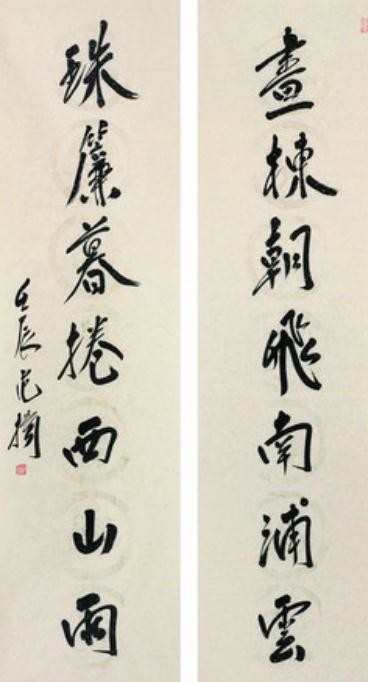 畫棟朝飛南浦雲
珠簾暮捲西山雨
壬辰